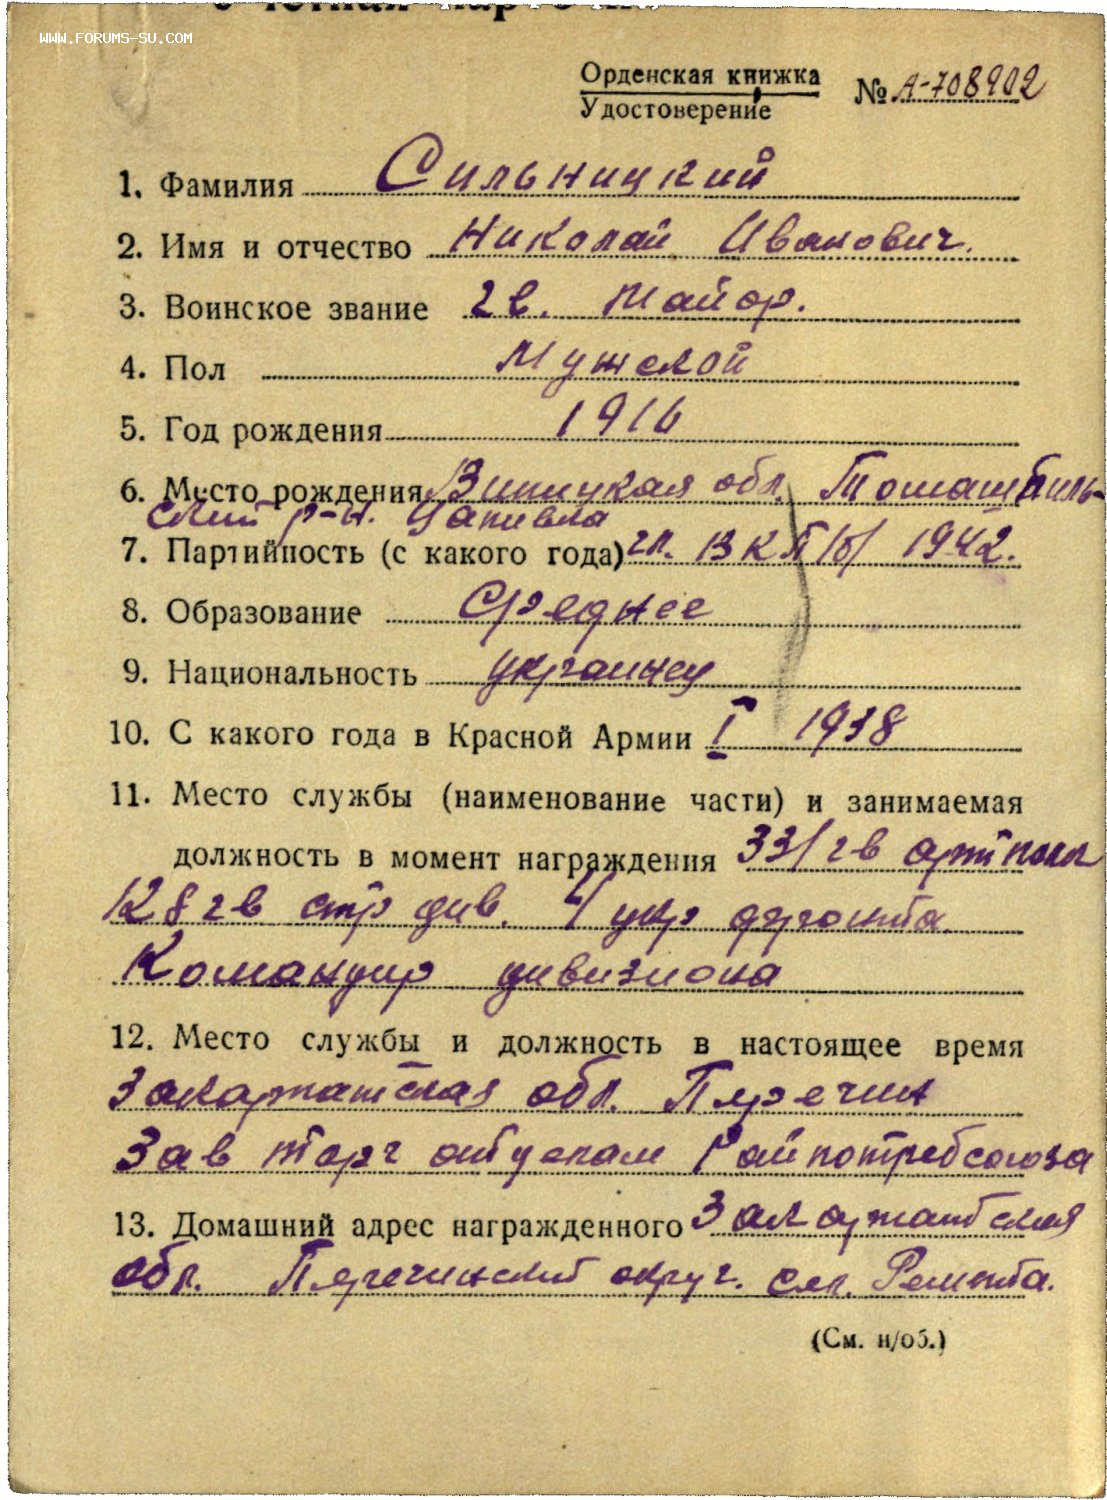 Учетная карточка
WWW.FORUMS-SU.COM
Орденская книжка
Удостоверение
№ А-708902
1. Фамилия Сильницкий
2. Имя и отчество Николай Иванович.
3. Воинское звание гв. майор.
4. Пол Мужской
5. Год рождения 1916
6. Место рождения Виницкая обл. Томашпиль-
ский р-н. Цапивка
7. Партийность (с какого года) чл. ВКП/б/ 1942.
8. Образование Среднее
9. Национальность украинец
10. С какого года в Красной Армии I 1938
11. Место службы (наименование части) и занимаемая
должность в момент награждения 331 гв артполк
128 гв стр див. 4 укр фронта.
Командир дивизиона
12. Место службы и должность в настоящее время
Закарпатская обл. Перечин
Зав торг отделом Райпотребсоюза
13. Домашний адрес награжденного Закарпатская
обл. Перечинский округ. сел.
(См. н/об.)